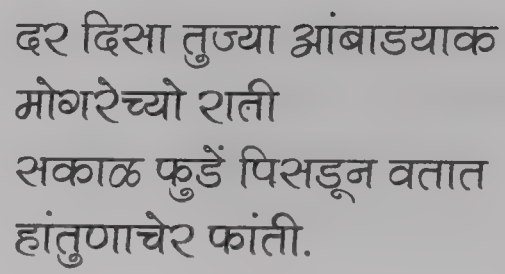 दर दिसा तुज्या आंबाडयाक
मोगरेच्यो राती
सकाळ फुडें पिसडून वतात
हांतुणाचेर फांती.